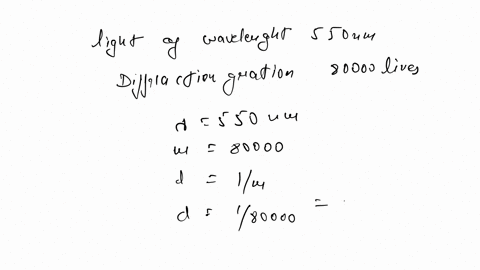 light of wavelenght 550nm
Diffraction gration 80000 lives
λ = 550 nm
m = 80000
d = 1/m
d = 1/80000 =